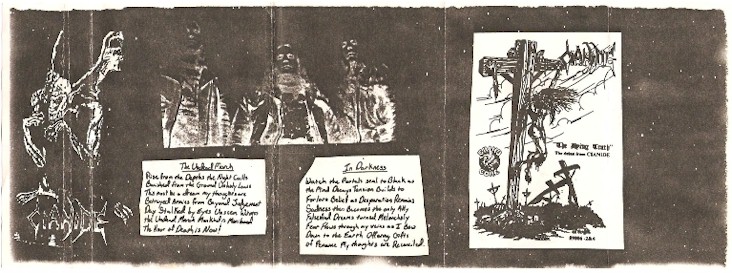 CIANIDE
The Undead March
Rise from the Depths the Night Calls
Banished from the Ground Unholy Laws
This must be a dream my thoughts are
Betrayed Armies from Beyond Judgement
Day Stalked by Eyes Unseen
the Undead March Mankind is
The Hour of Death is Now!
In Darkness
Watch the Portals seal to Black as
the Mind Decays Tension Builds to
Forlorn Belief as Desperation Remains
Sadness then Becomes the only Ally
Dreams turned Melancholy
Fear Flows through my veins as I Bow
Down to the Earth Offering Gifts
of Penance My thoughts are Reconciled.
CIANIDE
"The Dying Truth"
The debut from CIANIDE